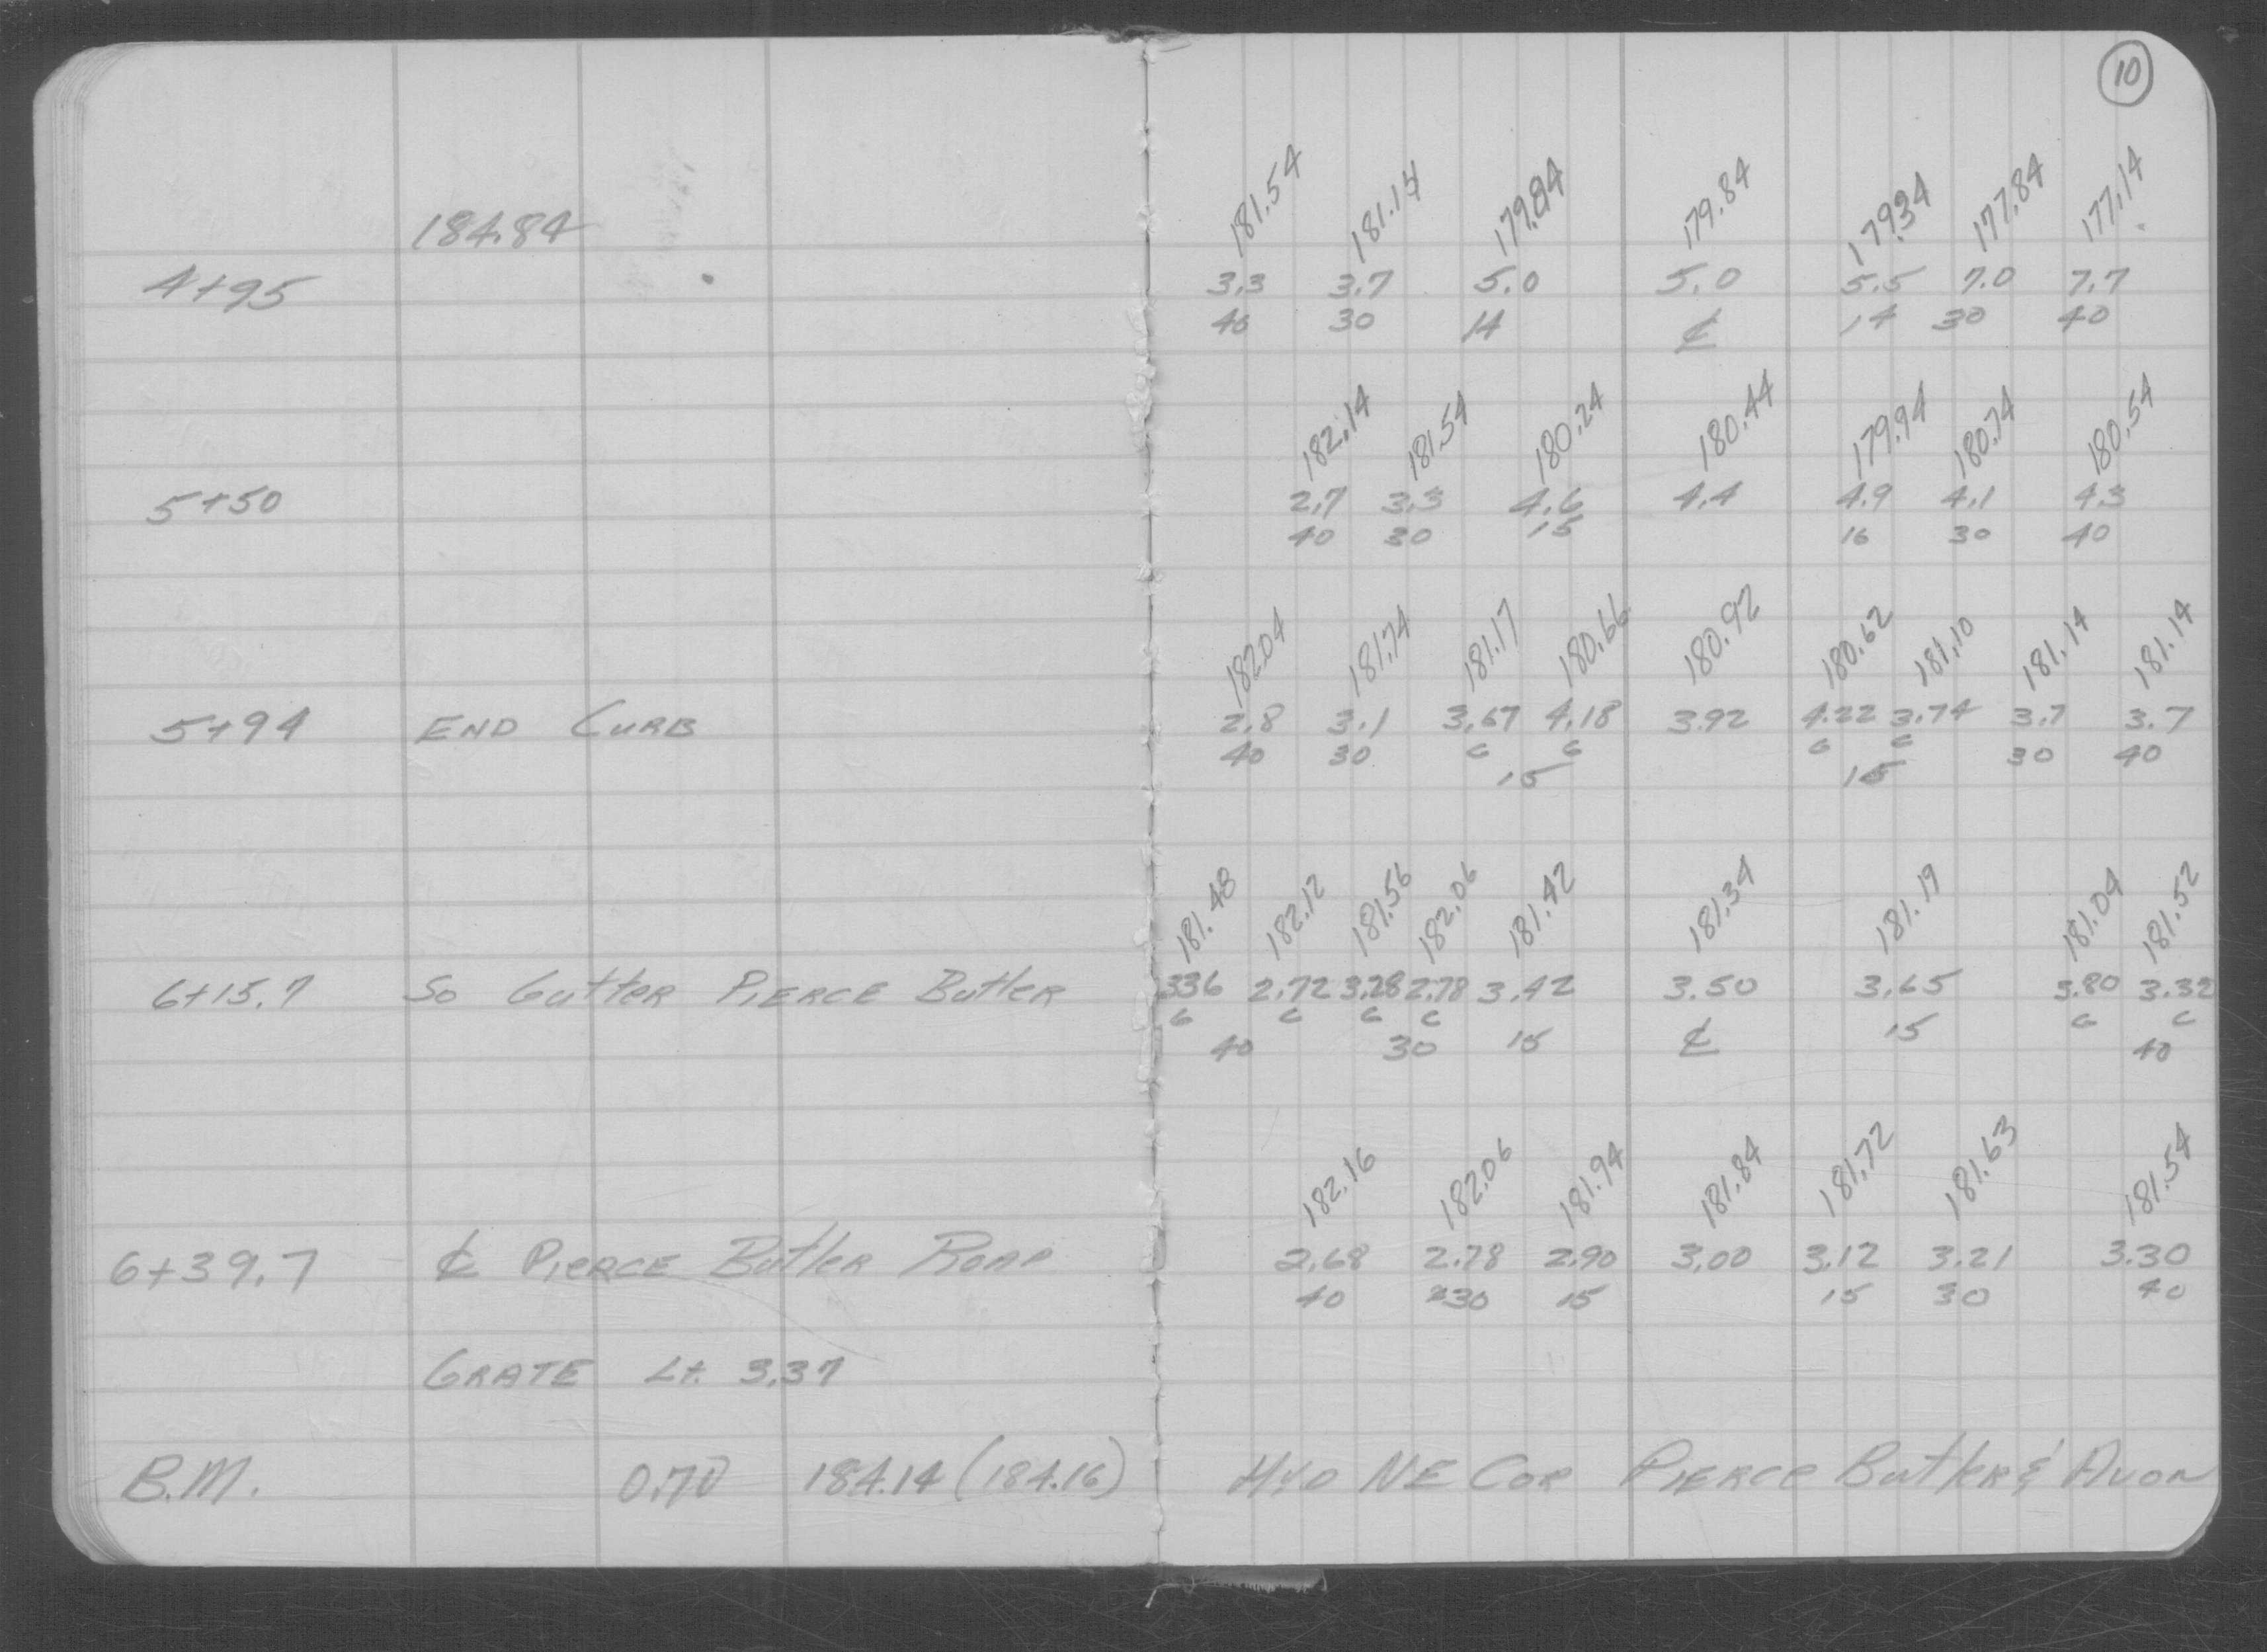 10
184.84 181.54 181.14 179.84 179.84 179.34 177.84 177.14
4+95 3.3 3.7 5.0 5.0 5.5 7.0 7.7
40 30 14 ℄ 14 30 40
182.14 181.54 180.24 180.44 179.94 180.74 180.54
5+50 2.7 3.3 4.6 4.4 4.9 4.1 4.3
40 30 15 16 30 40
182.04 181.74 181.17 180.66 180.92 180.62 181.10 181.14 181.14
5+94 END CURB 2.8 3.1 3.67 4.18 3.92 4.22 3.74 3.7 3.7
40 30 C G G C 30 40
15 15
181.48 182.12 181.56 182.06 181.42 181.34 181.19 181.04 181.52
6+15.7 So Gutter PIERCE Butler 336 2.72 3.28 2.78 3.42 3.50 3.65 3.80 3.32
G C G C G C
40 30 15 ℄ 15 40
182.16 182.06 181.94 181.84 181.72 181.63 181.54
6+39.7 ℄ PIERCE Butler ROAD 2.68 2.78 2.90 3.00 3.12 3.21 3.30
40 30 15 15 30 40
GRATE Lt. 3.37
B.M. 0.70 184.14 (184.16) HYD NE COR PIERCE Butler & AVON